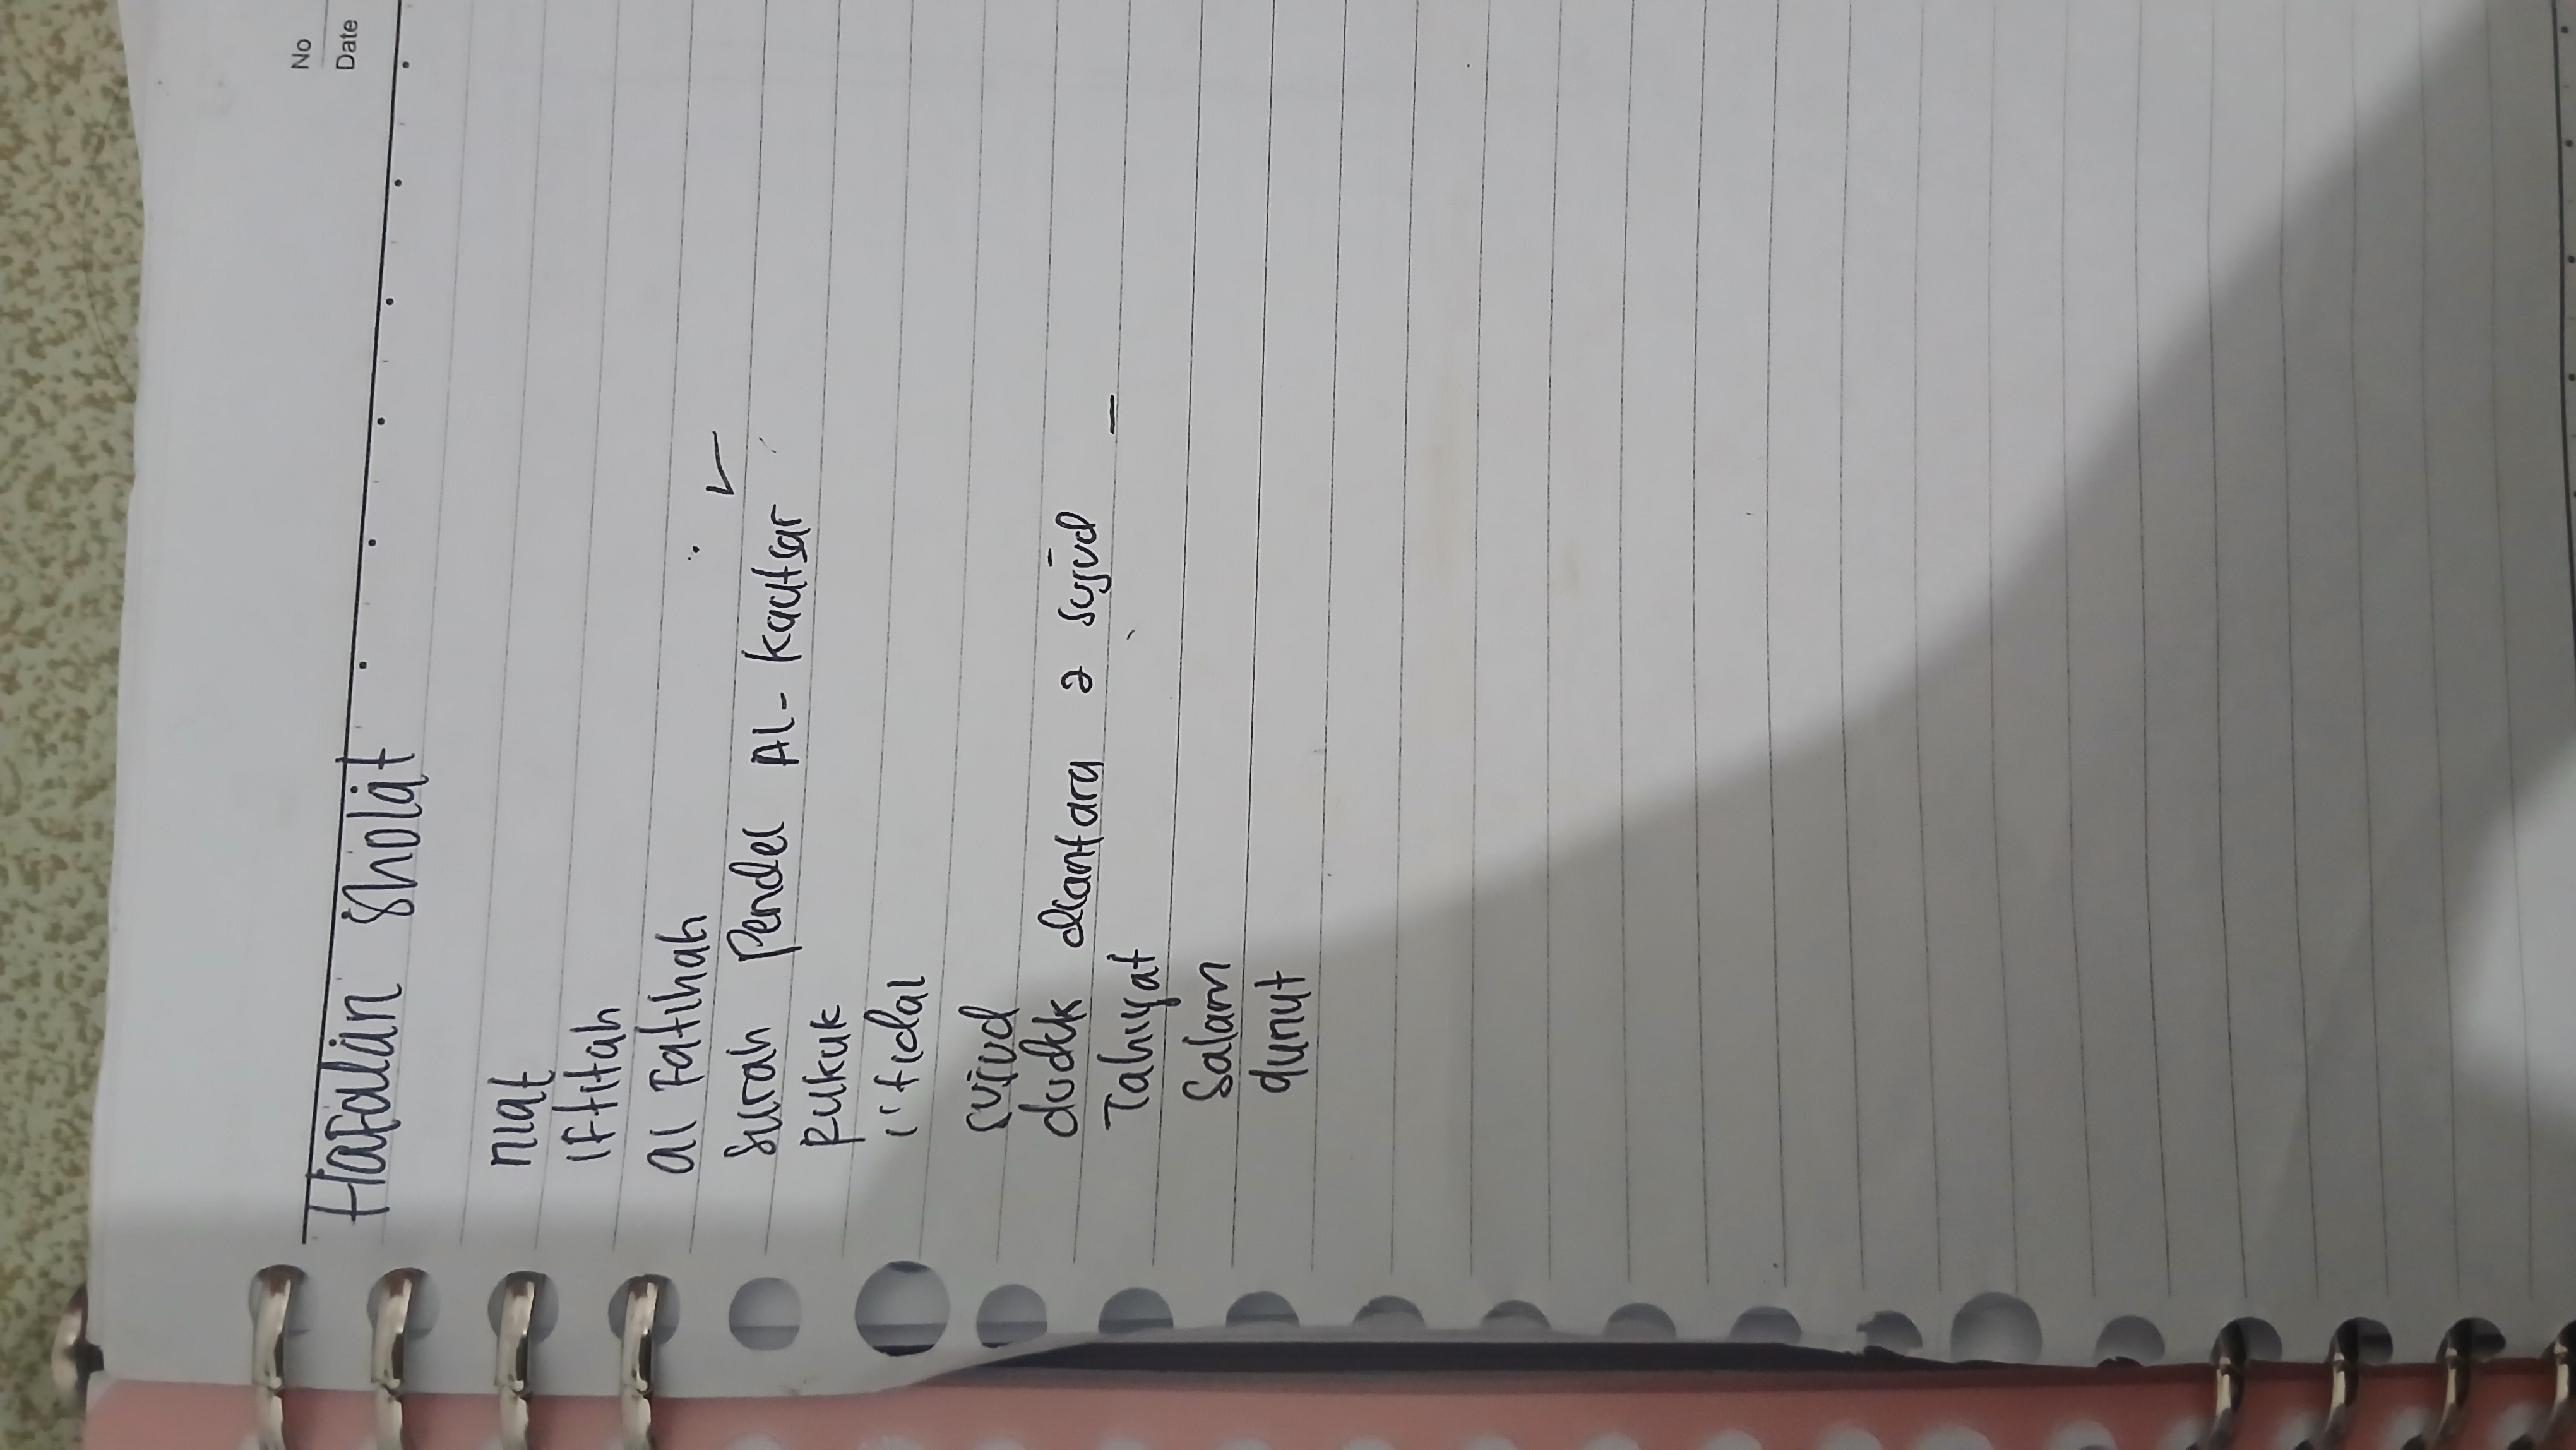 No
Date
Hafalan Sholat
niat
iftitah
al Fatihah
Surah Pendek Al-kautsar ✓
Rukuk
i'tidal
sujud
duduk diantara 2 sujud –
Tahiyat
Salam
qunut